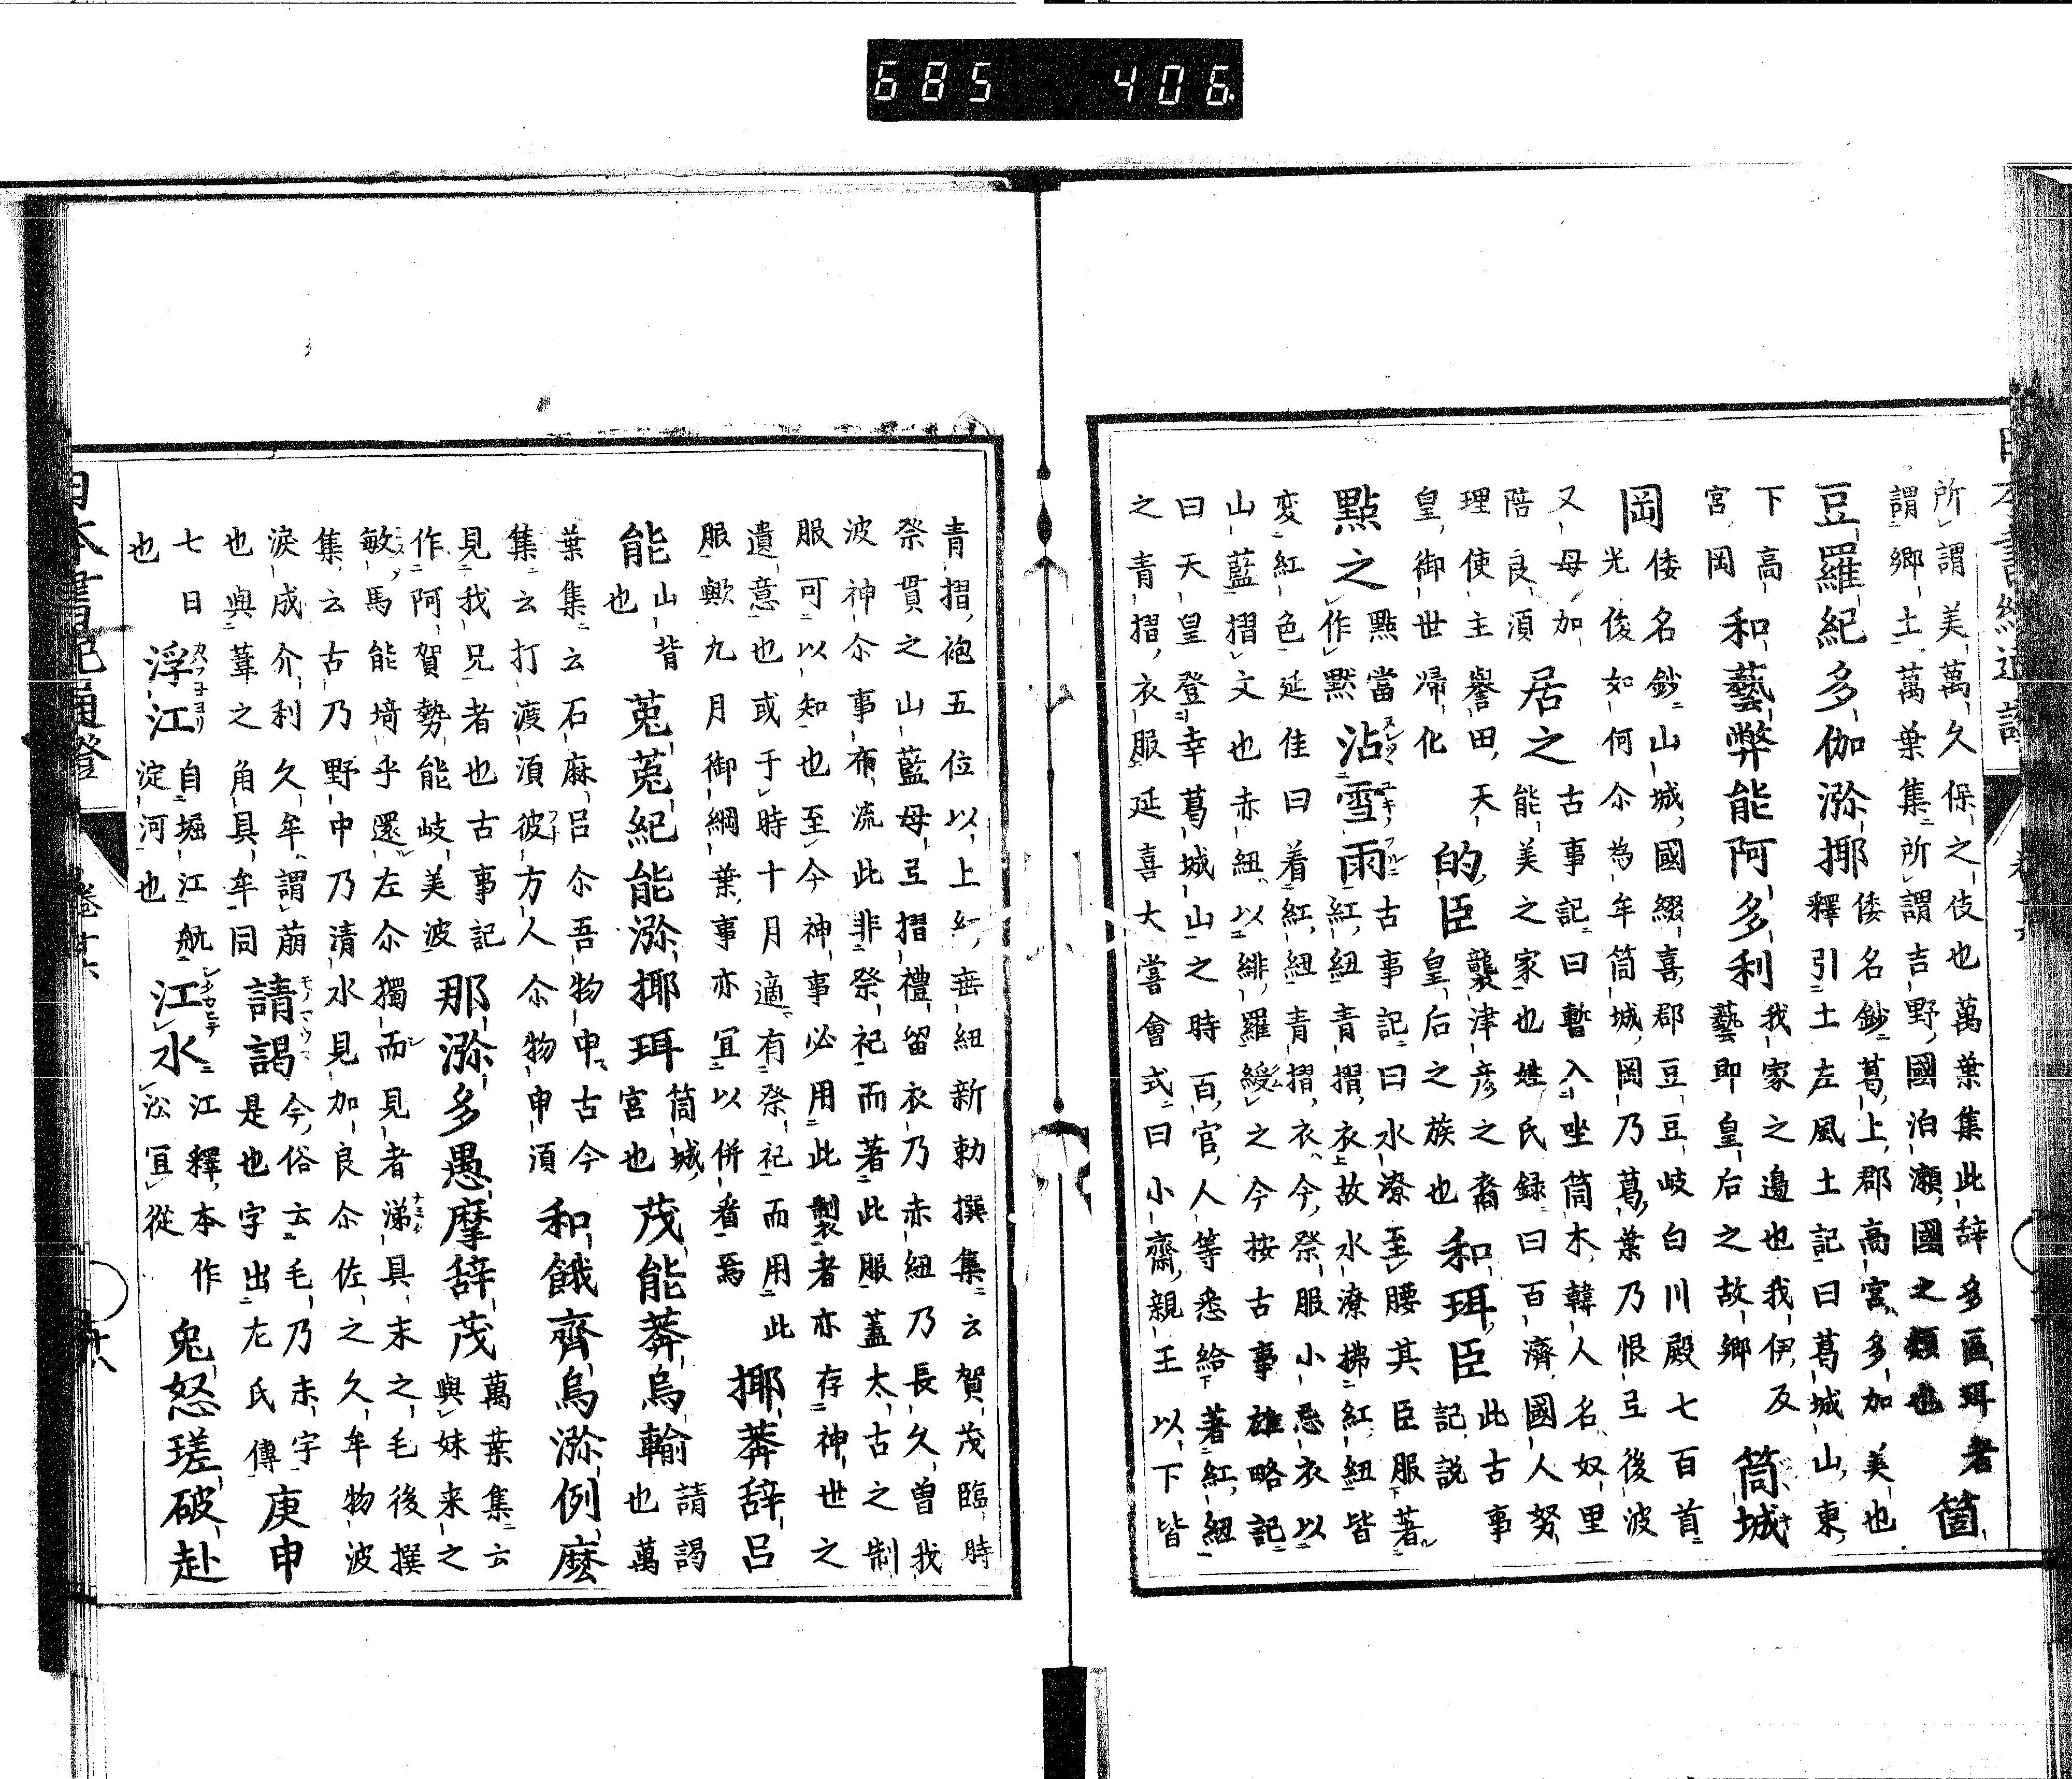 685 406
所謂美萬久保之伎也萬葉集此辞多區珥者
謂郷土萬葉集所謂吉野國泊瀬國之類也 箇
豆羅紀多伽濔揶 倭名鈔葛上郡高宮多加美也
釋引土左風土記曰葛城山東
下高
宮岡 和藝弊能阿多利 我家之邊也我伊反
藝即皇后之故郷 筒城
岡 倭名鈔山城國綴喜郡豆豆岐白川殿七百首
光俊如何尒為牟筒城岡乃葛葉乃恨弖後波
又母加
陪良湏 居之 古事記曰暫入坐筒木韓人名奴里
能美之家也姓氏録曰百濟國人努
理使主譽田天
皇御世帰化 的臣 襲津彦之裔
皇后之族也 和珥臣 此古事
記説
點之 點當
作黙 沾雪雨 古事記曰水潦至腰其臣服著
紅紐青摺衣故水潦拂紅紐皆
変紅色延佳曰着紅紐青摺衣今祭服小忌衣以
山藍摺文也赤紐以緋羅綬之今按古事雄略記
曰天皇登幸葛城山之時百官人等悉給著紅紐
之青摺衣服延喜大嘗會式曰小齋親王以下皆
青摺袍五位以上紅垂紐新勅撰集云賀茂臨時
祭貫之山藍母弖摺禮留衣乃赤紐乃長久曽我
波神尒事布流此非祭祀而著此服蓋太古之制
服可以知也至今神事必用此製者亦存神世之
遺意也或于時十月適有祭祀而用此
服歟九月御綱葉事亦冝以併看焉 揶莽辞呂
能 山背
也 菟菟紀能濔揶珥 筒城
宮也 茂能莽烏輸 請謁
也萬
葉集云石麻呂尒吾物申古今
集云打渡湏彼方人尒物申湏 和餓齊烏濔例麼
見我兄者也古事記
作阿賀勢能岐美波 那濔多愚摩辞茂 萬葉集云
與妹来之
敏馬能埼乎還左尒獨而見者涕具末之毛後撰
集云古乃野中乃清水見加良尒佐之久牟物波
淚成介利久牟謂萠
也與葦之角具牟同 請謁 今俗云毛乃未宇
是也字出左氏傳 庚申
七日
也 浮江 自堀江航
淀河也 江水 江釋本作
㳂冝從 兔怒瑳破赴
日本書紀通證 卷十六 十八